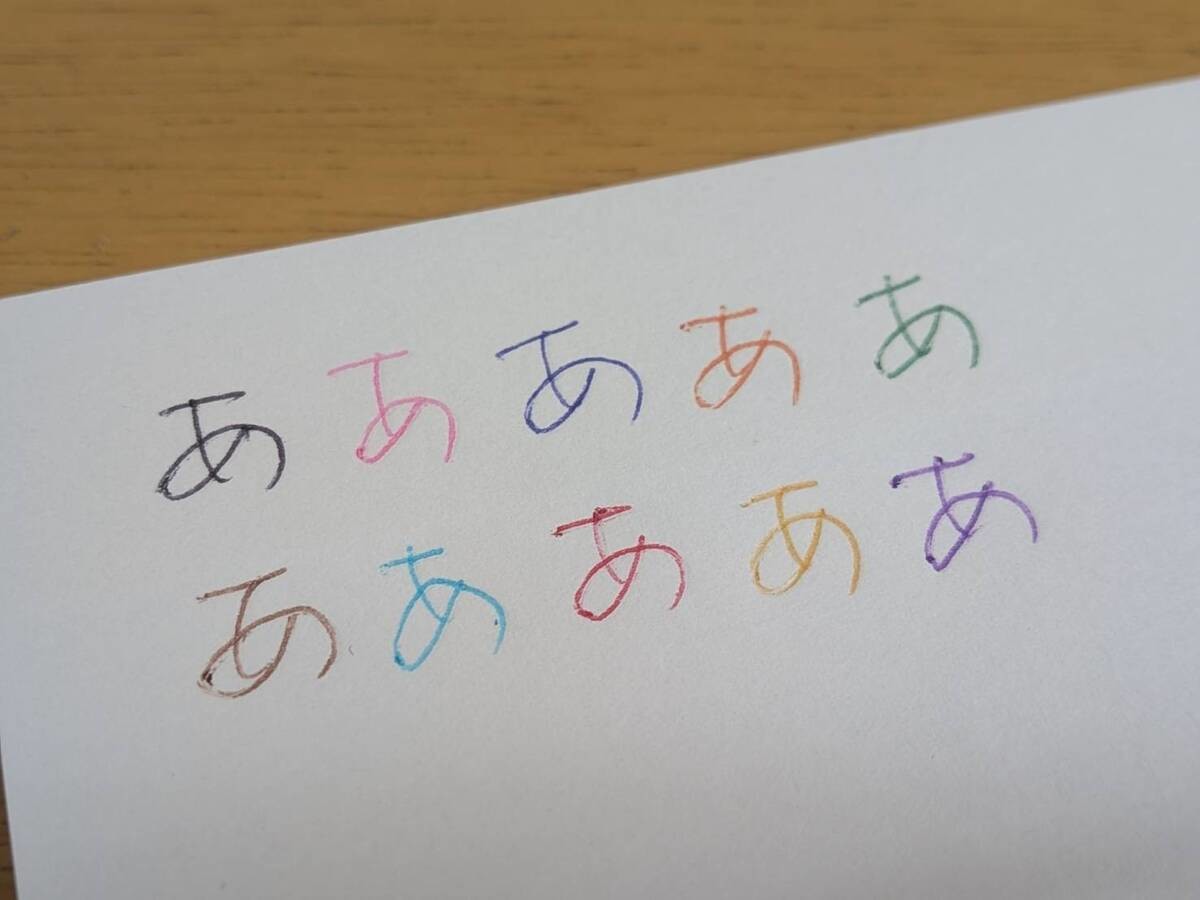 あ あ あ あ あ
あ あ あ あ あ